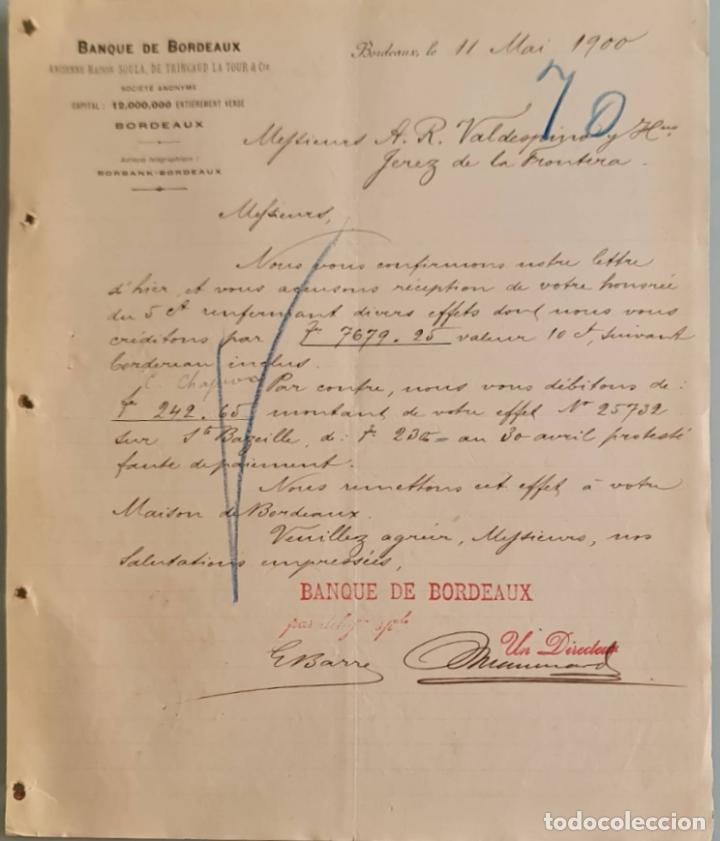 BANQUE DE BORDEAUX
ANCIENNE MAISON SOULA, DE TRINCAUD LA TOUR & Cie
SOCIÉTÉ ANONYME
CAPITAL: 12,000,000 ENTIÈREMENT VERSÉ
BORDEAUX
Adresse télégraphique:
BORBANK-BORDEAUX
Bordeaux, le 11 Mai 1900
70
Messieurs A. R. Valdespino y Hno
Jerez de la Frontera.
Messieurs,
Nous vous confirmons notre lettre
d'hier, et vous accusons réception de votre honorée
du 5 Ct renfermant divers effets dont nous vous
créditons par F 7679.25 valeur 10 Ct, suivant
bordereau inclus.
Par contre, nous vous débitons de:
F 242.65 montant de votre effet No 25732
sur Ste Bazeille, de: F 235 = au 30 avril protesté
faute de paiement.
Nous remettons cet effet à votre
Maison de Bordeaux.
Veuillez agréer, Messieurs, nos
salutations empressées,
BANQUE DE BORDEAUX
Un Directeur
E Barre
todocoleccion